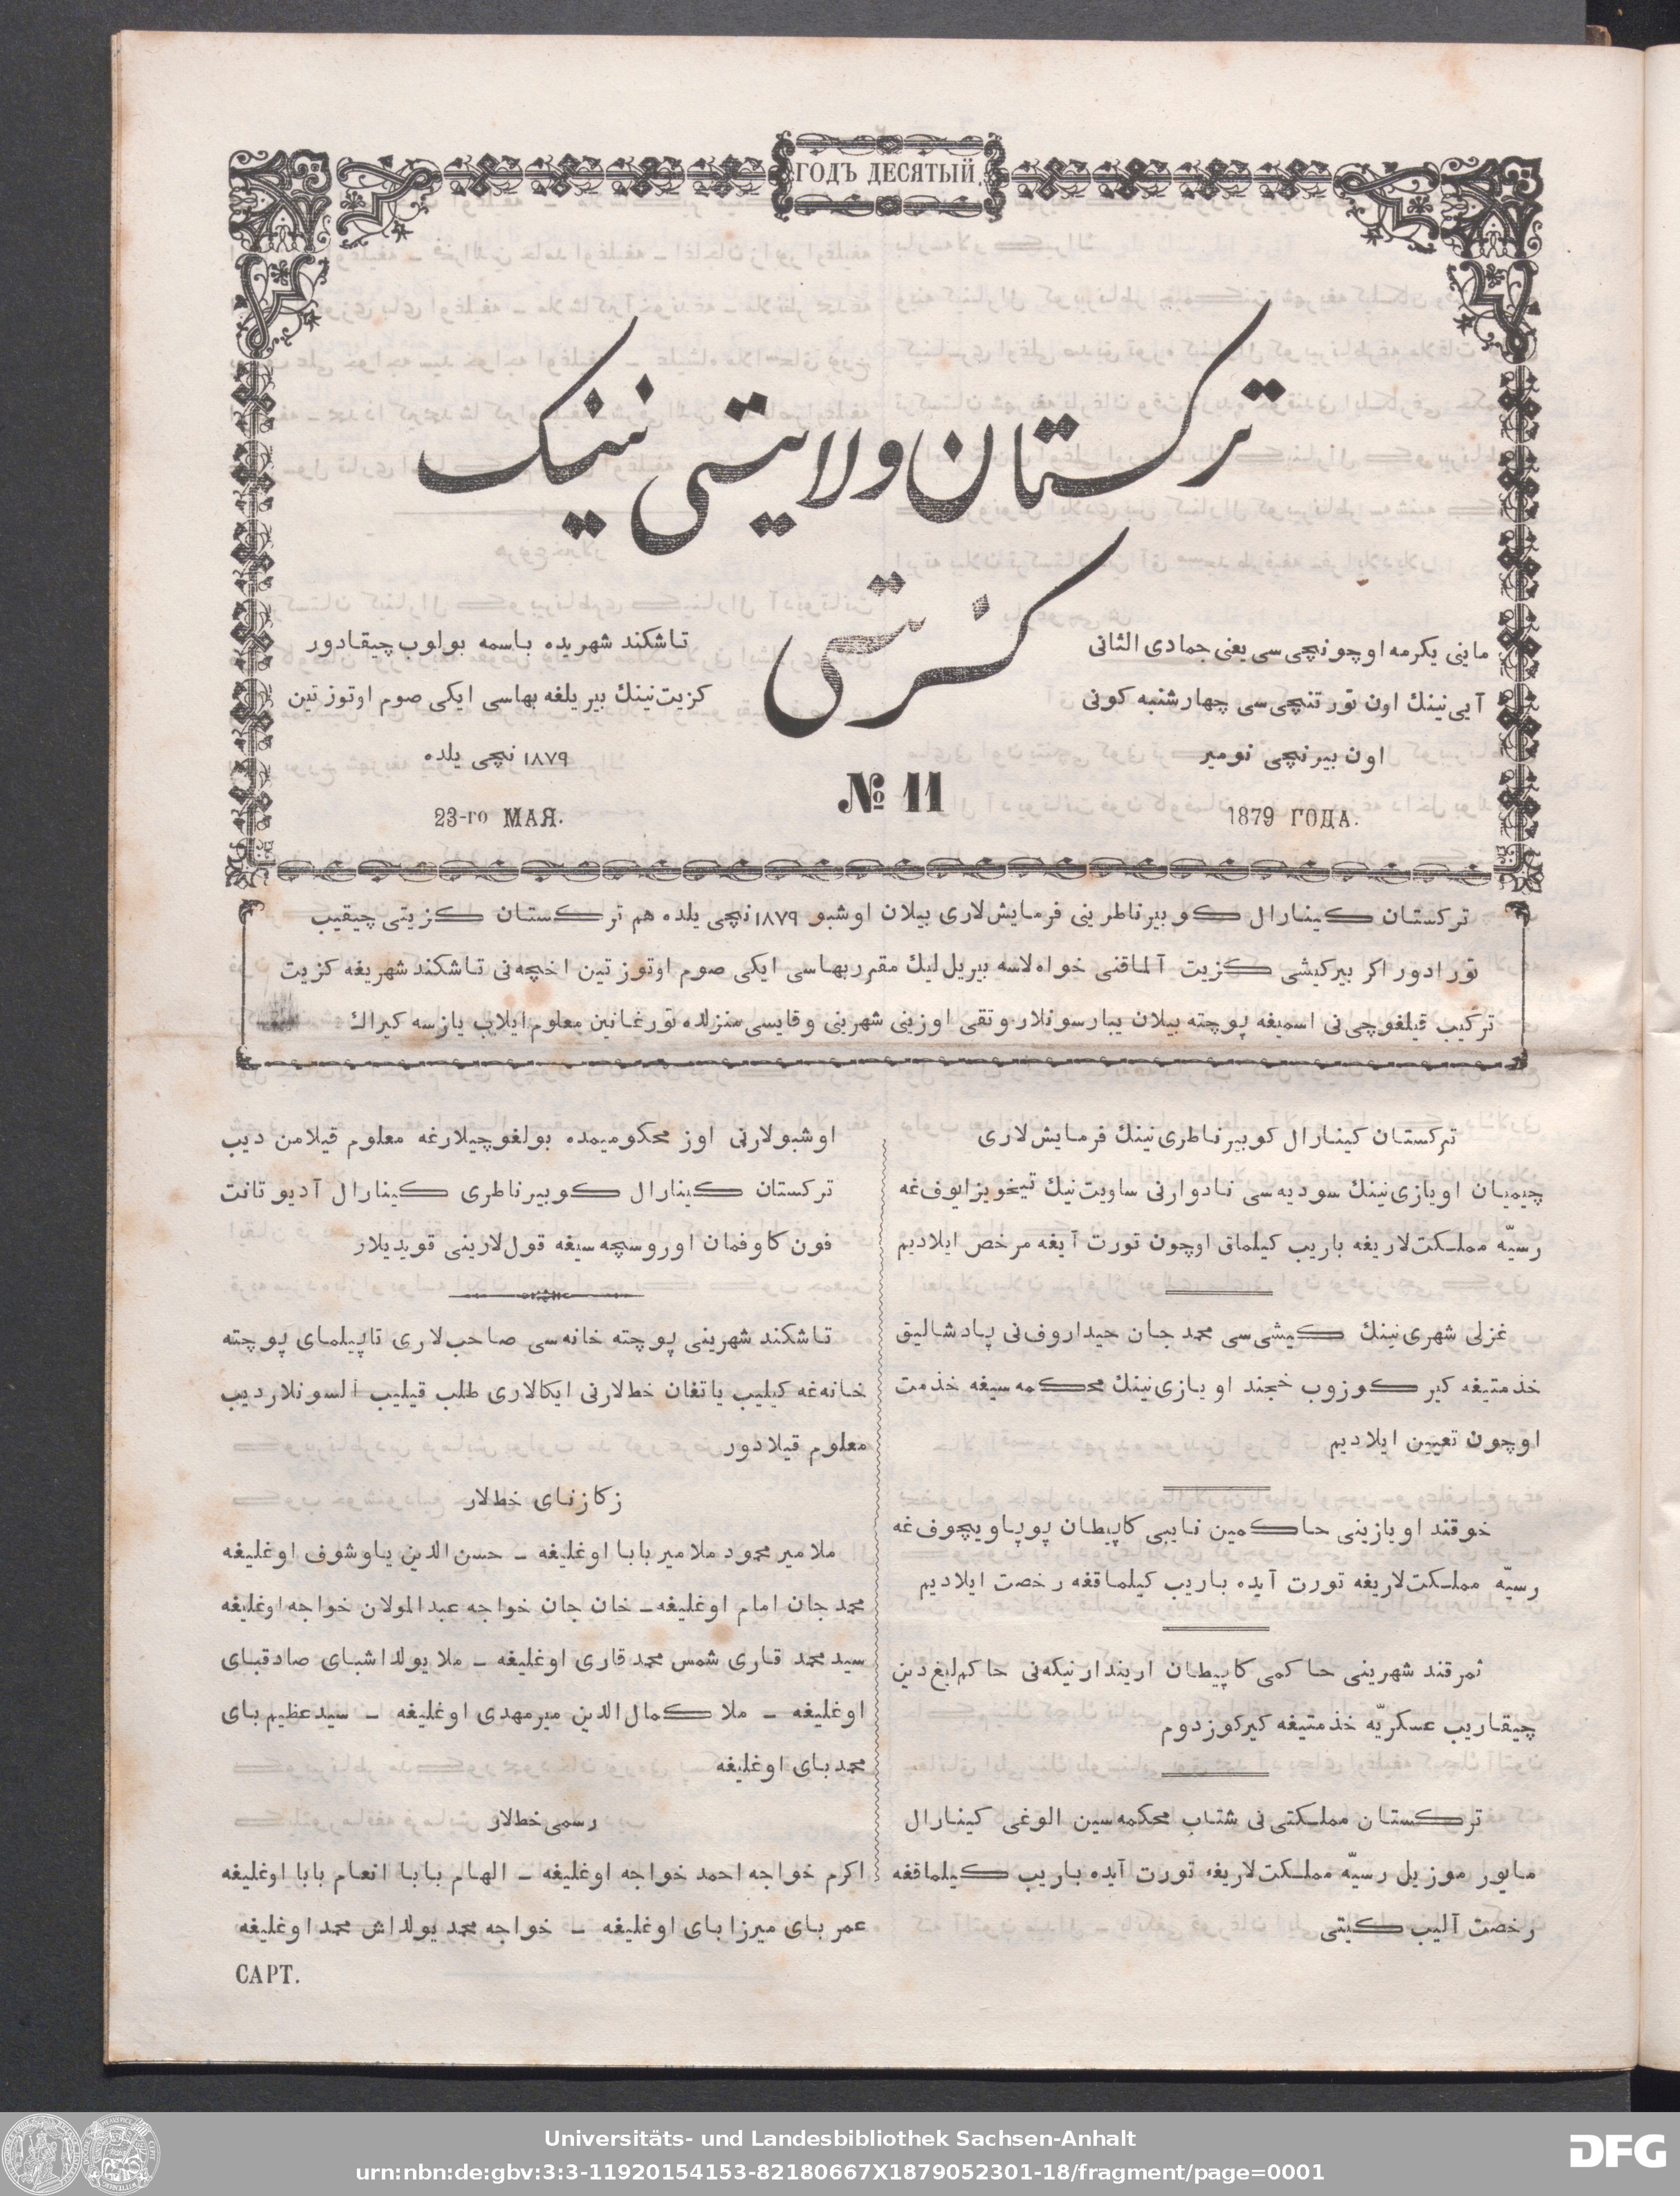 ГОДЪ ДЕСЯТЫЙ.
ترکستان ولایتی نینک
کزیتی
ماینی یکرمه اوچونچی سی یعنی جمادی الثانی
آیی نینك اون تورتنچی سی چهارشنبه کونی
اون بیرنچی نومیر
تاشکند شهریده باسمه بولوب چیقادور
کزیت نینك بیر یلغه بهاسی ایکی صوم اوتوز تین
١٨٧٩ نچی یلده
№ 11
23-го МАЯ.
1879 ГОДА.
ترکستان کینارال کوبیرناطرینی فرمایش لاری بیلان اوشبو ١٨٧٩ نچی یلده هم ترکستان کزیتی چیقیب
تورادور اکر بیرکیشی کزیت آلماقنی خواه لاسه بیریل لیك مقرر بهاسی ایکی صوم اوتوز تین اخچه نی تاشکند شهریغه کزیت
ترکیب قیلغوچی نی اسمیغه پوچته بیلان یبارسونلار وتقی اوزینی شهرینی وقایسی منزلده تورغانین معلوم ایلاب یازسه کیراك
ترکستان کینارال کوبیرناطری نینك فرمایش لاری
چیمیان اویازی نینك سودیه سی نادوارنی ساویت نیك تیخوبزایوف غه
رسیّه مملکت لاریغه باریب کیلماق اوچون تورت آیغه مرخص ایلادیم
غزلی شهری نینك کیشی سی محمد جان حیداروف نی پادشالیق
خذمتیغه کیرکوزوب خجند اویازی نینك محکمه سیغه خذمت
اوچون تعیین ایلادیم
خوقند اویازینی حاکمین نایبی کاپیطان پوپاویچوف غه
رسیّه مملکت لاریغه تورت آیده باریب کیلماقغه رخصت ایلادیم
ثمرقند شهرینی حاکمی کاپیطان اریندارنیکه نی حاکم لیغ دین
چیقاریب عسکریّه خذمتیغه کیرکوزدوم
ترکستان مملکتی نی شتاب محکمه سین الوغی کینارال
مایور موزیل رسیّه مملکت لاریغه تورت آیده باریب کیلماقغه
رخصت آلیب کیتی
اوشبولارنی اوز محکومیمده بولغوچیلارغه معلوم قیلامن دیب
ترکستان کینارال کوبیرناطری کینارال آدیوتانت
فون کاوفمان اوروسچه سیغه قول لارینی قویدیلار
تاشکند شهرینی پوچته خانه سی صاحب لاری تاپیلمای پوچته
خانه غه کیلیب یاتغان خط لارنی ایکالاری طلب قیلیب آلسونلار دیب
معلوم قیلادور
زکازنای خط لار
ملا میر محمود ملا میر بابا اوغلیغه ــ حسن الدین یاوشوف اوغلیغه
محمد جان امام اوغلیغه ــ خان جان خواجه عبد المولان خواجه اوغلیغه
سید محمد قاری شمس محمد قاری اوغلیغه ــ ملا یولداشبای صادقبای
اوغلیغه ــ ملا کمال الدین میرمهدی اوغلیغه ــ سید عظیم بای
محمد بای اوغلیغه
رسمی خط لار
اکرم خواجه احمد خواجه اوغلیغه ــ الهام بابا انعام بابا اوغلیغه
عمر بای میرزا بای اوغلیغه ــ خواجه محمد یولداش محمد اوغلیغه
САРТ.
Universitäts- und Landesbibliothek Sachsen-Anhalt
urn:nbn:de:gbv:3:3-11920154153-82180667X1879052301-18/fragment/page=0001
DFG